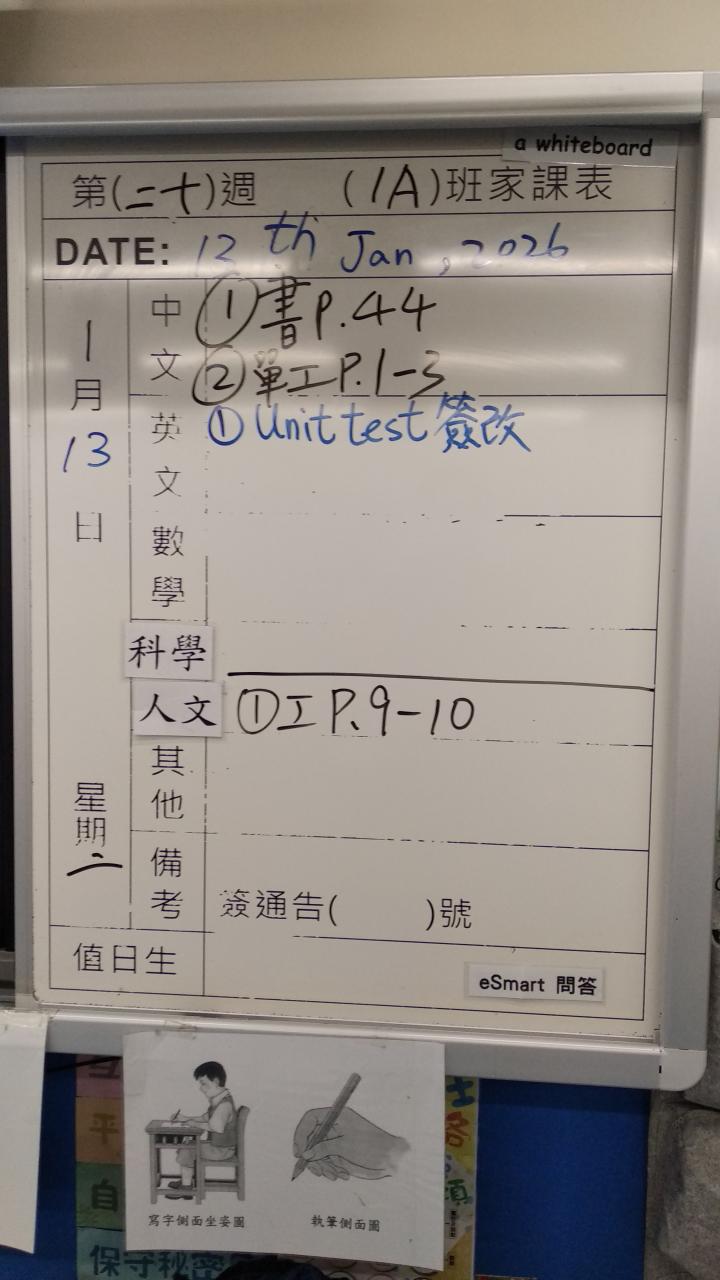 a whiteboard
第(二十)週 (1A)班家課表
DATE: 12th Jan, 2026
1月13日 星期二
中文 ①書P.44
②單工P.1-3
英文 ①Unit test 簽改
數學
科學
人文 ①工P.9-10
其他
備考 簽通告( )號
值日生
eSmart 問答
平
自
保守秘密
寫字側面坐姿圖 執筆側面圖